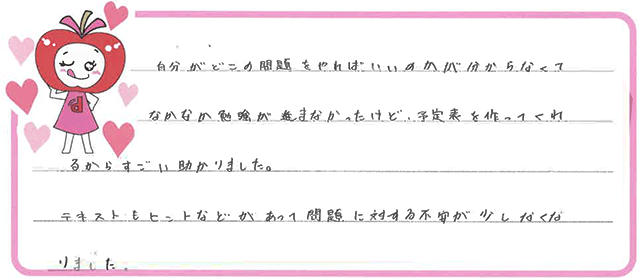 自分がどこの問題をやればいいのかが分からなくて
なかなか勉強が進まなかったけど、予定表を作ってくれ
るからすごい助かりました。
テキストもヒントなどがあって問題に対する不安が少しなくな
りました。
d